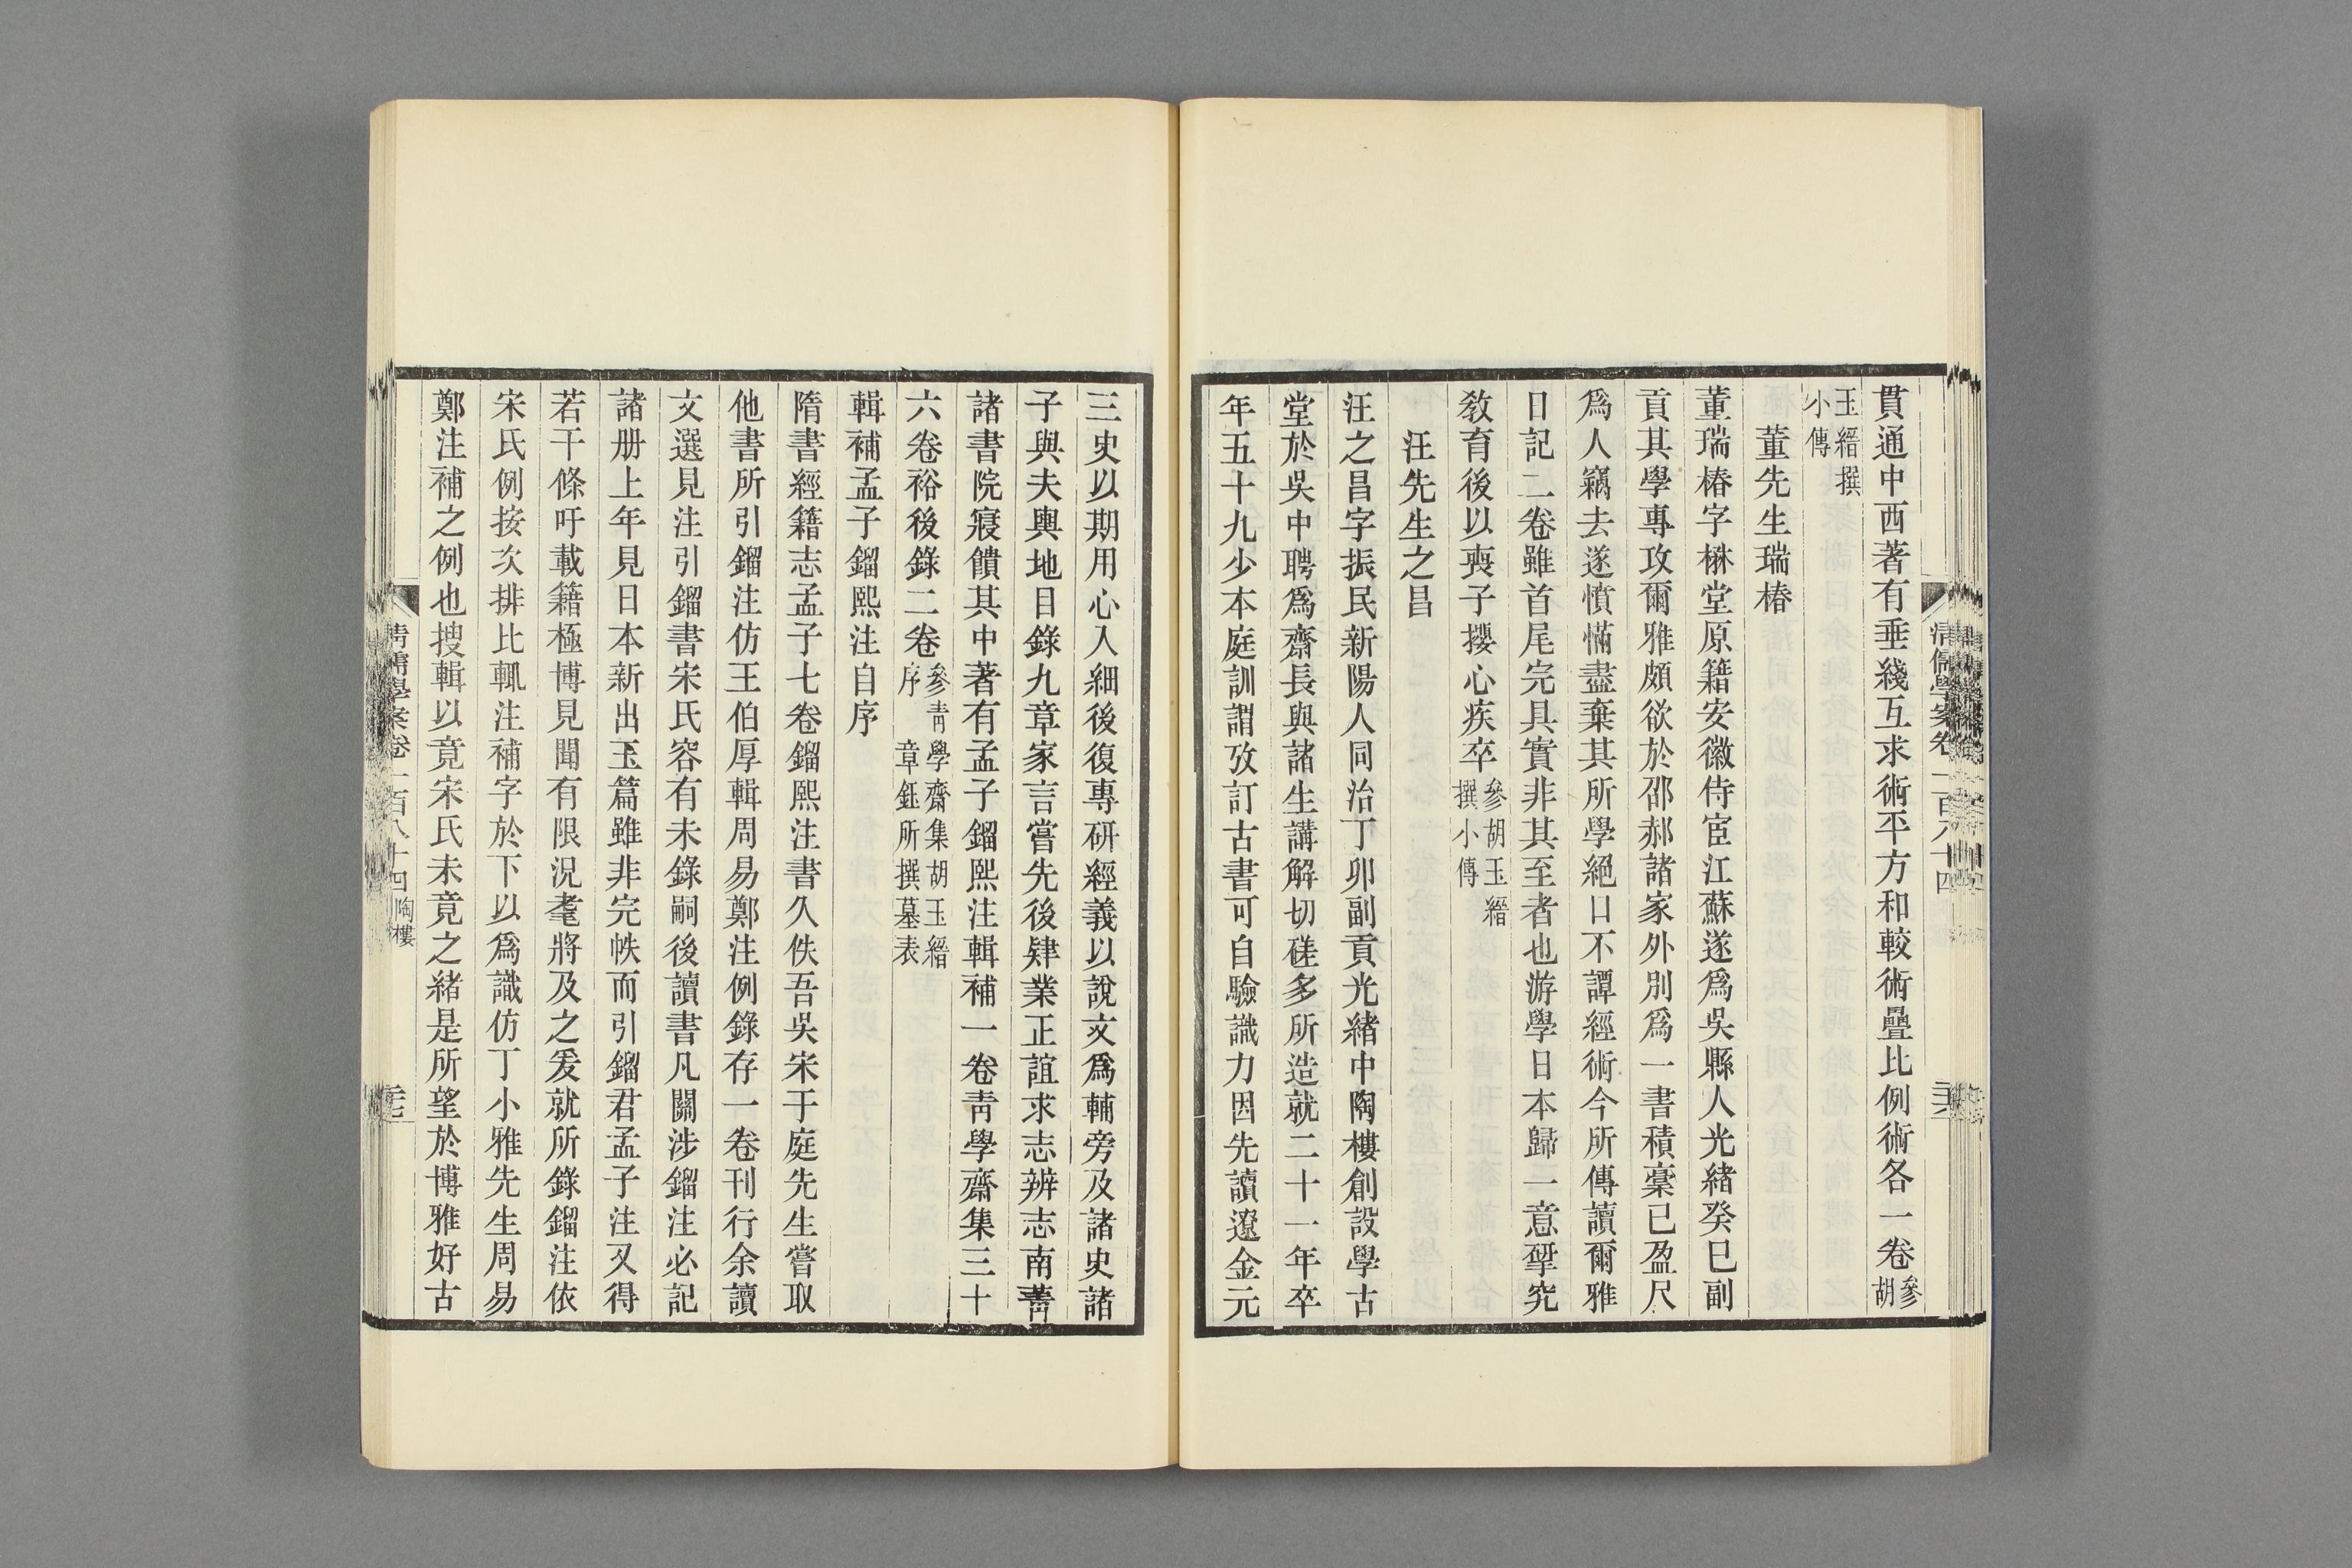 貫通中西著有垂綫互求術平方和較術疊比例術各一卷參胡
玉縉撰
小傳
董先生瑞椿
董瑞椿字楙堂原籍安徽侍宦江蘇遂爲吳縣人光緒癸巳副
貢其學專攻爾雅頗欲於邵郝諸家外別爲一書積稾已盈尺
爲人竊去遂憤懣盡棄其所學絕口不譚經術今所傳讀爾雅
日記二卷雖首尾完具實非其至者也游學日本歸一意揅究
敎育後以喪子攖心疾卒參胡玉縉
撰小傳
汪先生之昌
汪之昌字振民新陽人同治丁卯副貢光緒中陶樓創設學古
堂於吳中聘爲齋長與諸生講解切磋多所造就二十一年卒
年五十九少本庭訓謂攷訂古書可自驗識力因先讀遼金元
三史以期用心入細後復專研經義以說文爲輔旁及諸史諸
子與夫輿地目錄九章家言嘗先後肄業正誼求志辨志南菁
諸書院寢饋其中著有孟子鎦熙注輯補一卷靑學齋集三十
六卷裕後錄二卷參靑學齋集胡玉縉
序章鈺所撰墓表
輯補孟子鎦熙注自序
隋書經籍志孟子七卷鎦熙注書久佚吾吳宋于庭先生嘗取
他書所引鎦注仿王伯厚輯周易鄭注例錄存一卷刊行余讀
文選見注引鎦書宋氏容有未錄嗣後讀書凡關涉鎦注必記
諸册上年見日本新出玉篇雖非完帙而引鎦君孟子注又得
若干條吁載籍極博見聞有限況耄將及之爰就所錄鎦注依
宋氏例按次排比輒注補字於下以爲識仿丁小雅先生周易
鄭注補之例也搜輯以竟宋氏未竟之緒是所望於博雅好古
清儒學案卷一百八十四 陶樓